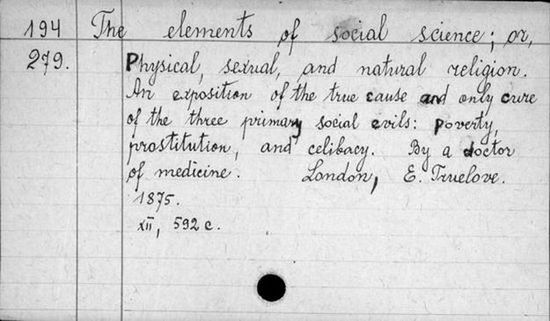 194 The elements of social science; or,
279. Physical, sexual, and natural religion.
An exposition of the true cause and only cure
of the three primary social evils: poverty,
prostitution, and celibacy. By a doctor
of medicine. London, E. Truelove.
1875.
XII, 592 c.